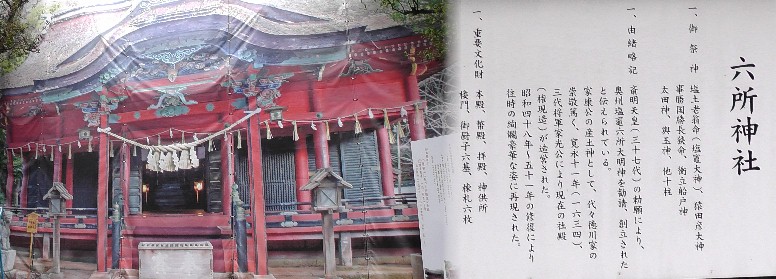 六所神社
一、御祭神　塩土老翁命(塩竈大神)、猿田彦大神
事勝国勝長狭命、衝立船戸神
太田神、興玉神、他十柱
一、由緒略記　斎明天皇(三十七代)の勅願により、
奥州塩竈六所大明神を勧請、創立された
と伝えられている。
家康公の産土神として、代々徳川家の
崇敬篤く、寛永十一年(一六三四)
三代将軍家光公により現在の社殿
(権現造)が造営された。
昭和四十八年～五十一年の修復により
往時の絢爛豪華な姿に再現された。
一、重要文化財　本殿、幣殿、拝殿、神供所
楼門、御厨子六基、棟札六枚